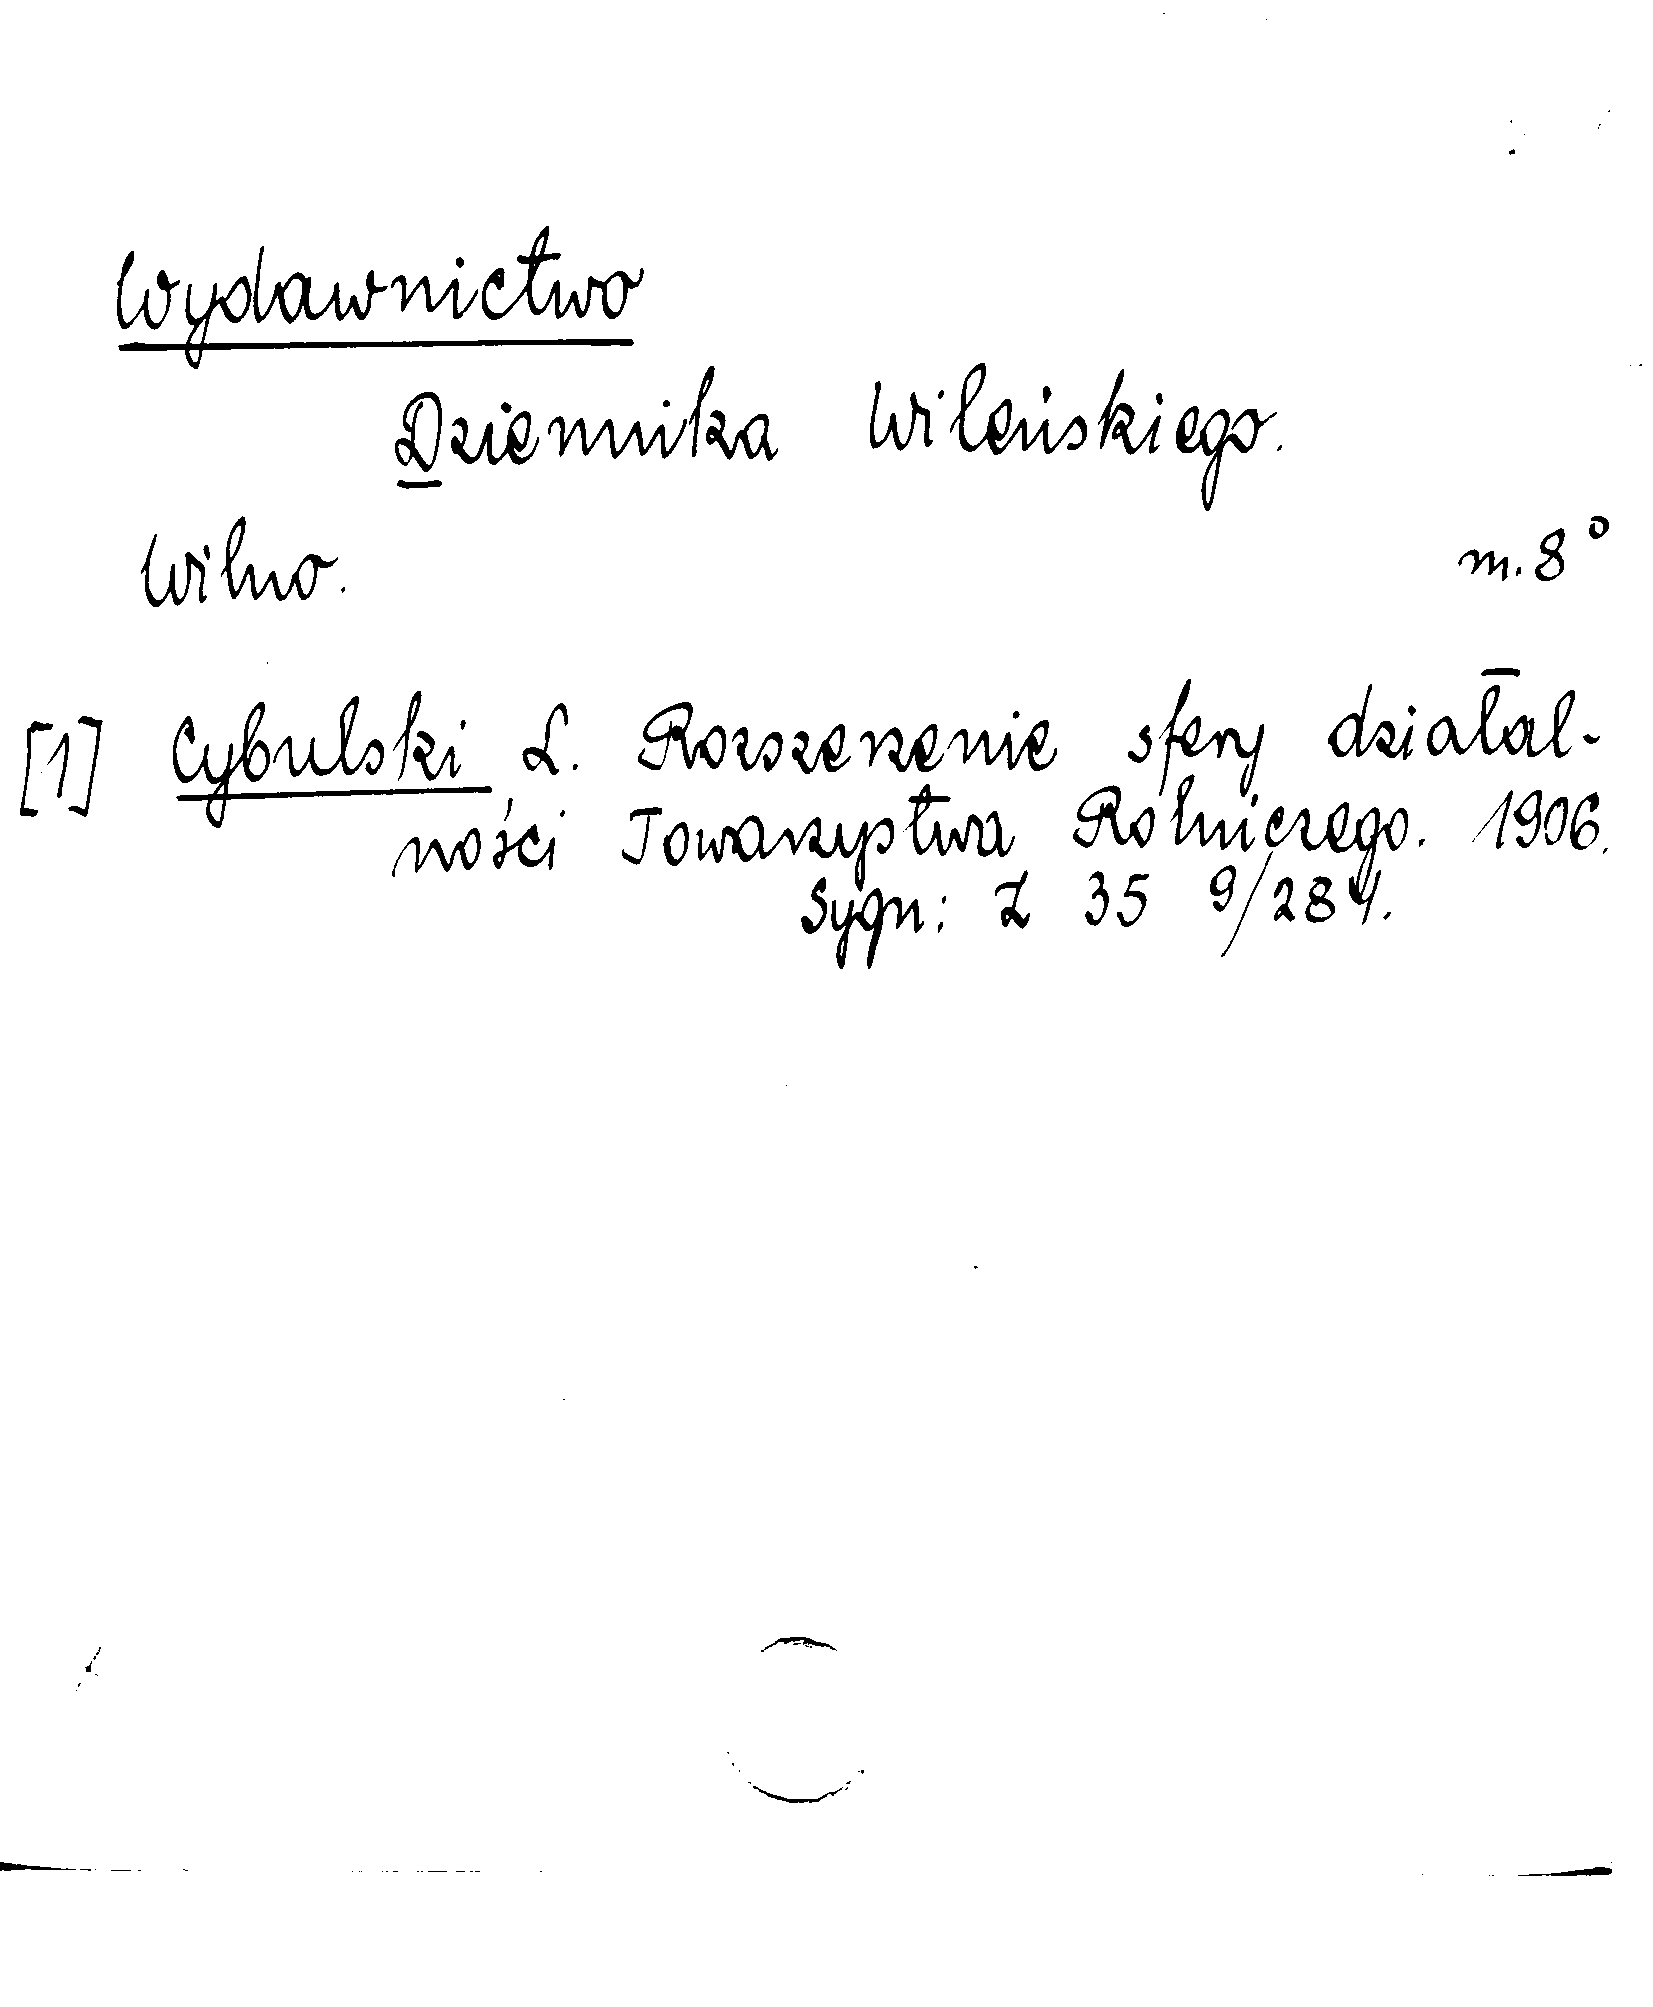 Wydawnictwo
Dziennika Wileńskiego.
Wilno. m. 8°
[1] Cybulski L. Rozszerzenie sfery działal-
ności Towarzystwa Rolniczego. 1906.
Sygn: Z 35 9/284.